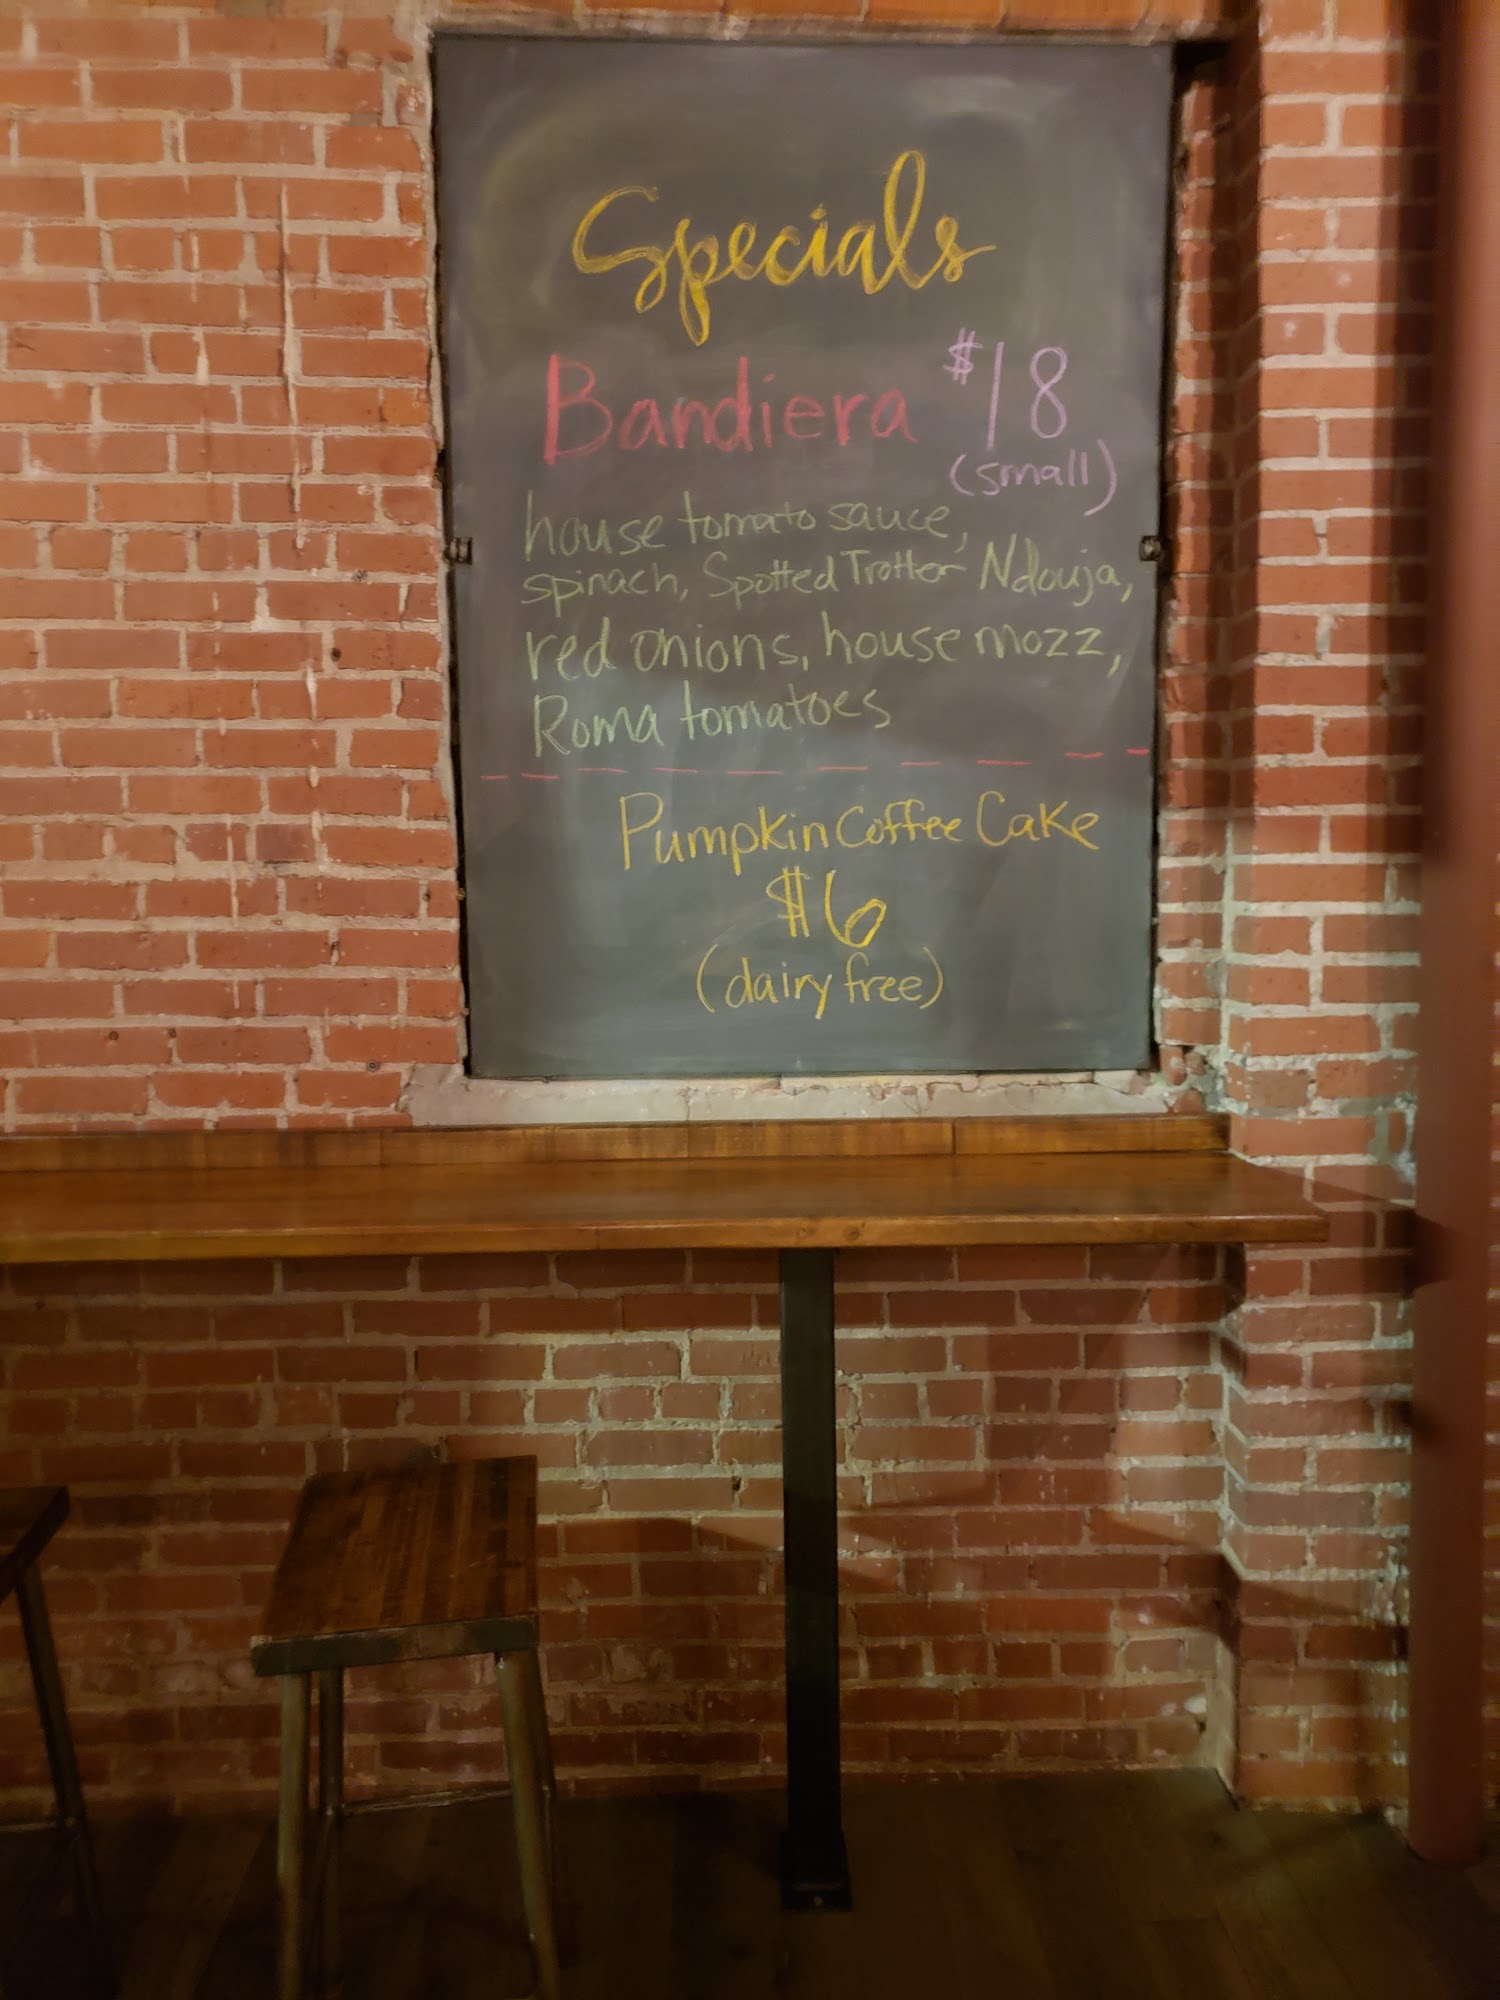 Specials
Bandiera $18
(small)
house tomato sauce,
spinach, Spotted Trotter Ndouja,
red onions, house mozz,
Roma tomatoes
Pumpkin Coffee Cake
$6
(dairy free)